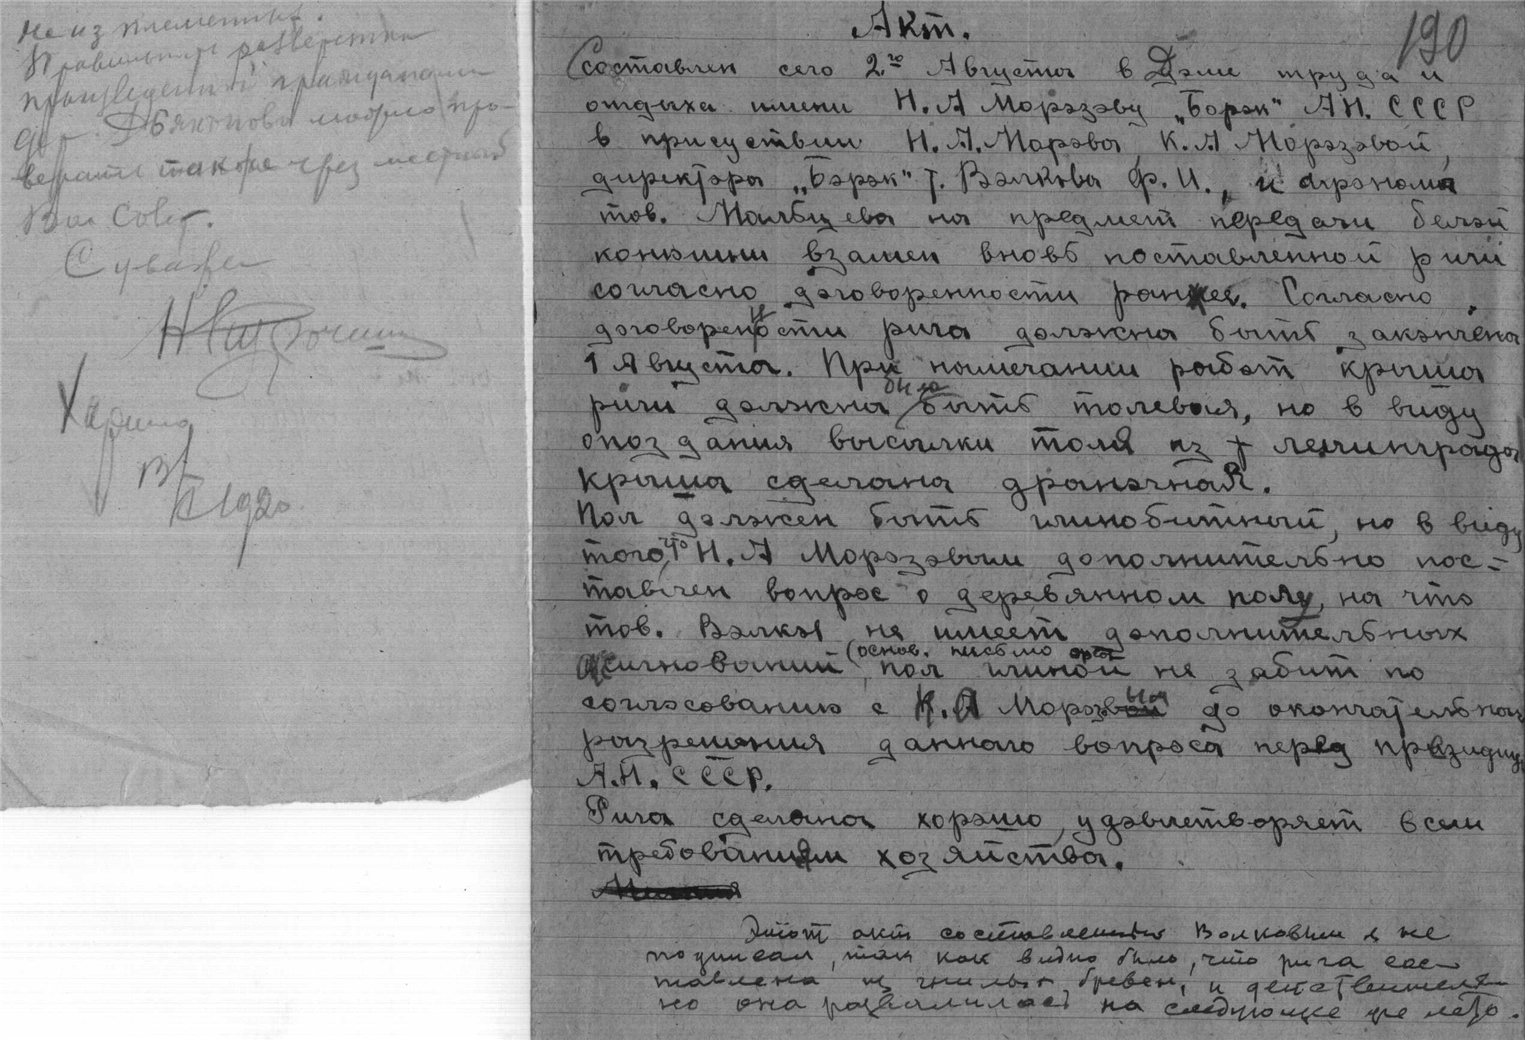 не из племенных.
Правильность разверстки
произведенной гражданами
дер. Дьяконово можно про-
верить также чрез местный
Вол Совет.
С уваже
Н
Харино
190
Акт.
Составлен сего 2го Августа в Доме труда и
отдыха имени Н.А Морозову „Борок" АН. СССР
в присутствии Н.А. Морзова К.А Морозовой,
директора „Борок" т. Волкова Ф.И., и агронома
тов. Мальцева на предмет передачи белой
конюшни взамен вновь поставленной риги
согласно договоренности ранее. Согласно
договорености рига должна быть закончена
1 Августа. При намечании работ крыша
риги должна была быть толевая, но в виду
опоздания высылки толя из Ленинграда
крыша сделана драночная.
Пол должен быть глинобитный, но в виду
того, что Н.А Морозовым дополнительно пос-
тавлен вопрос о деревянном полу, на что
тов. Волков не имеет дополнительных
асигнований (основ. письмо пол глиной не забит по
согласованию с К.А Морозовым до окончательного
разрешения данного вопроса перед президиум
А.Н. СССР.
Рига сделана хорошо, удовлетворяет всем
требованиям хозяйства.
Этот акт составленный Волковым я не
подписал, так как видно было, что рига сос-
тавлена из гнилых бревен, и действитель-
но она развалилась на следующее же лето.